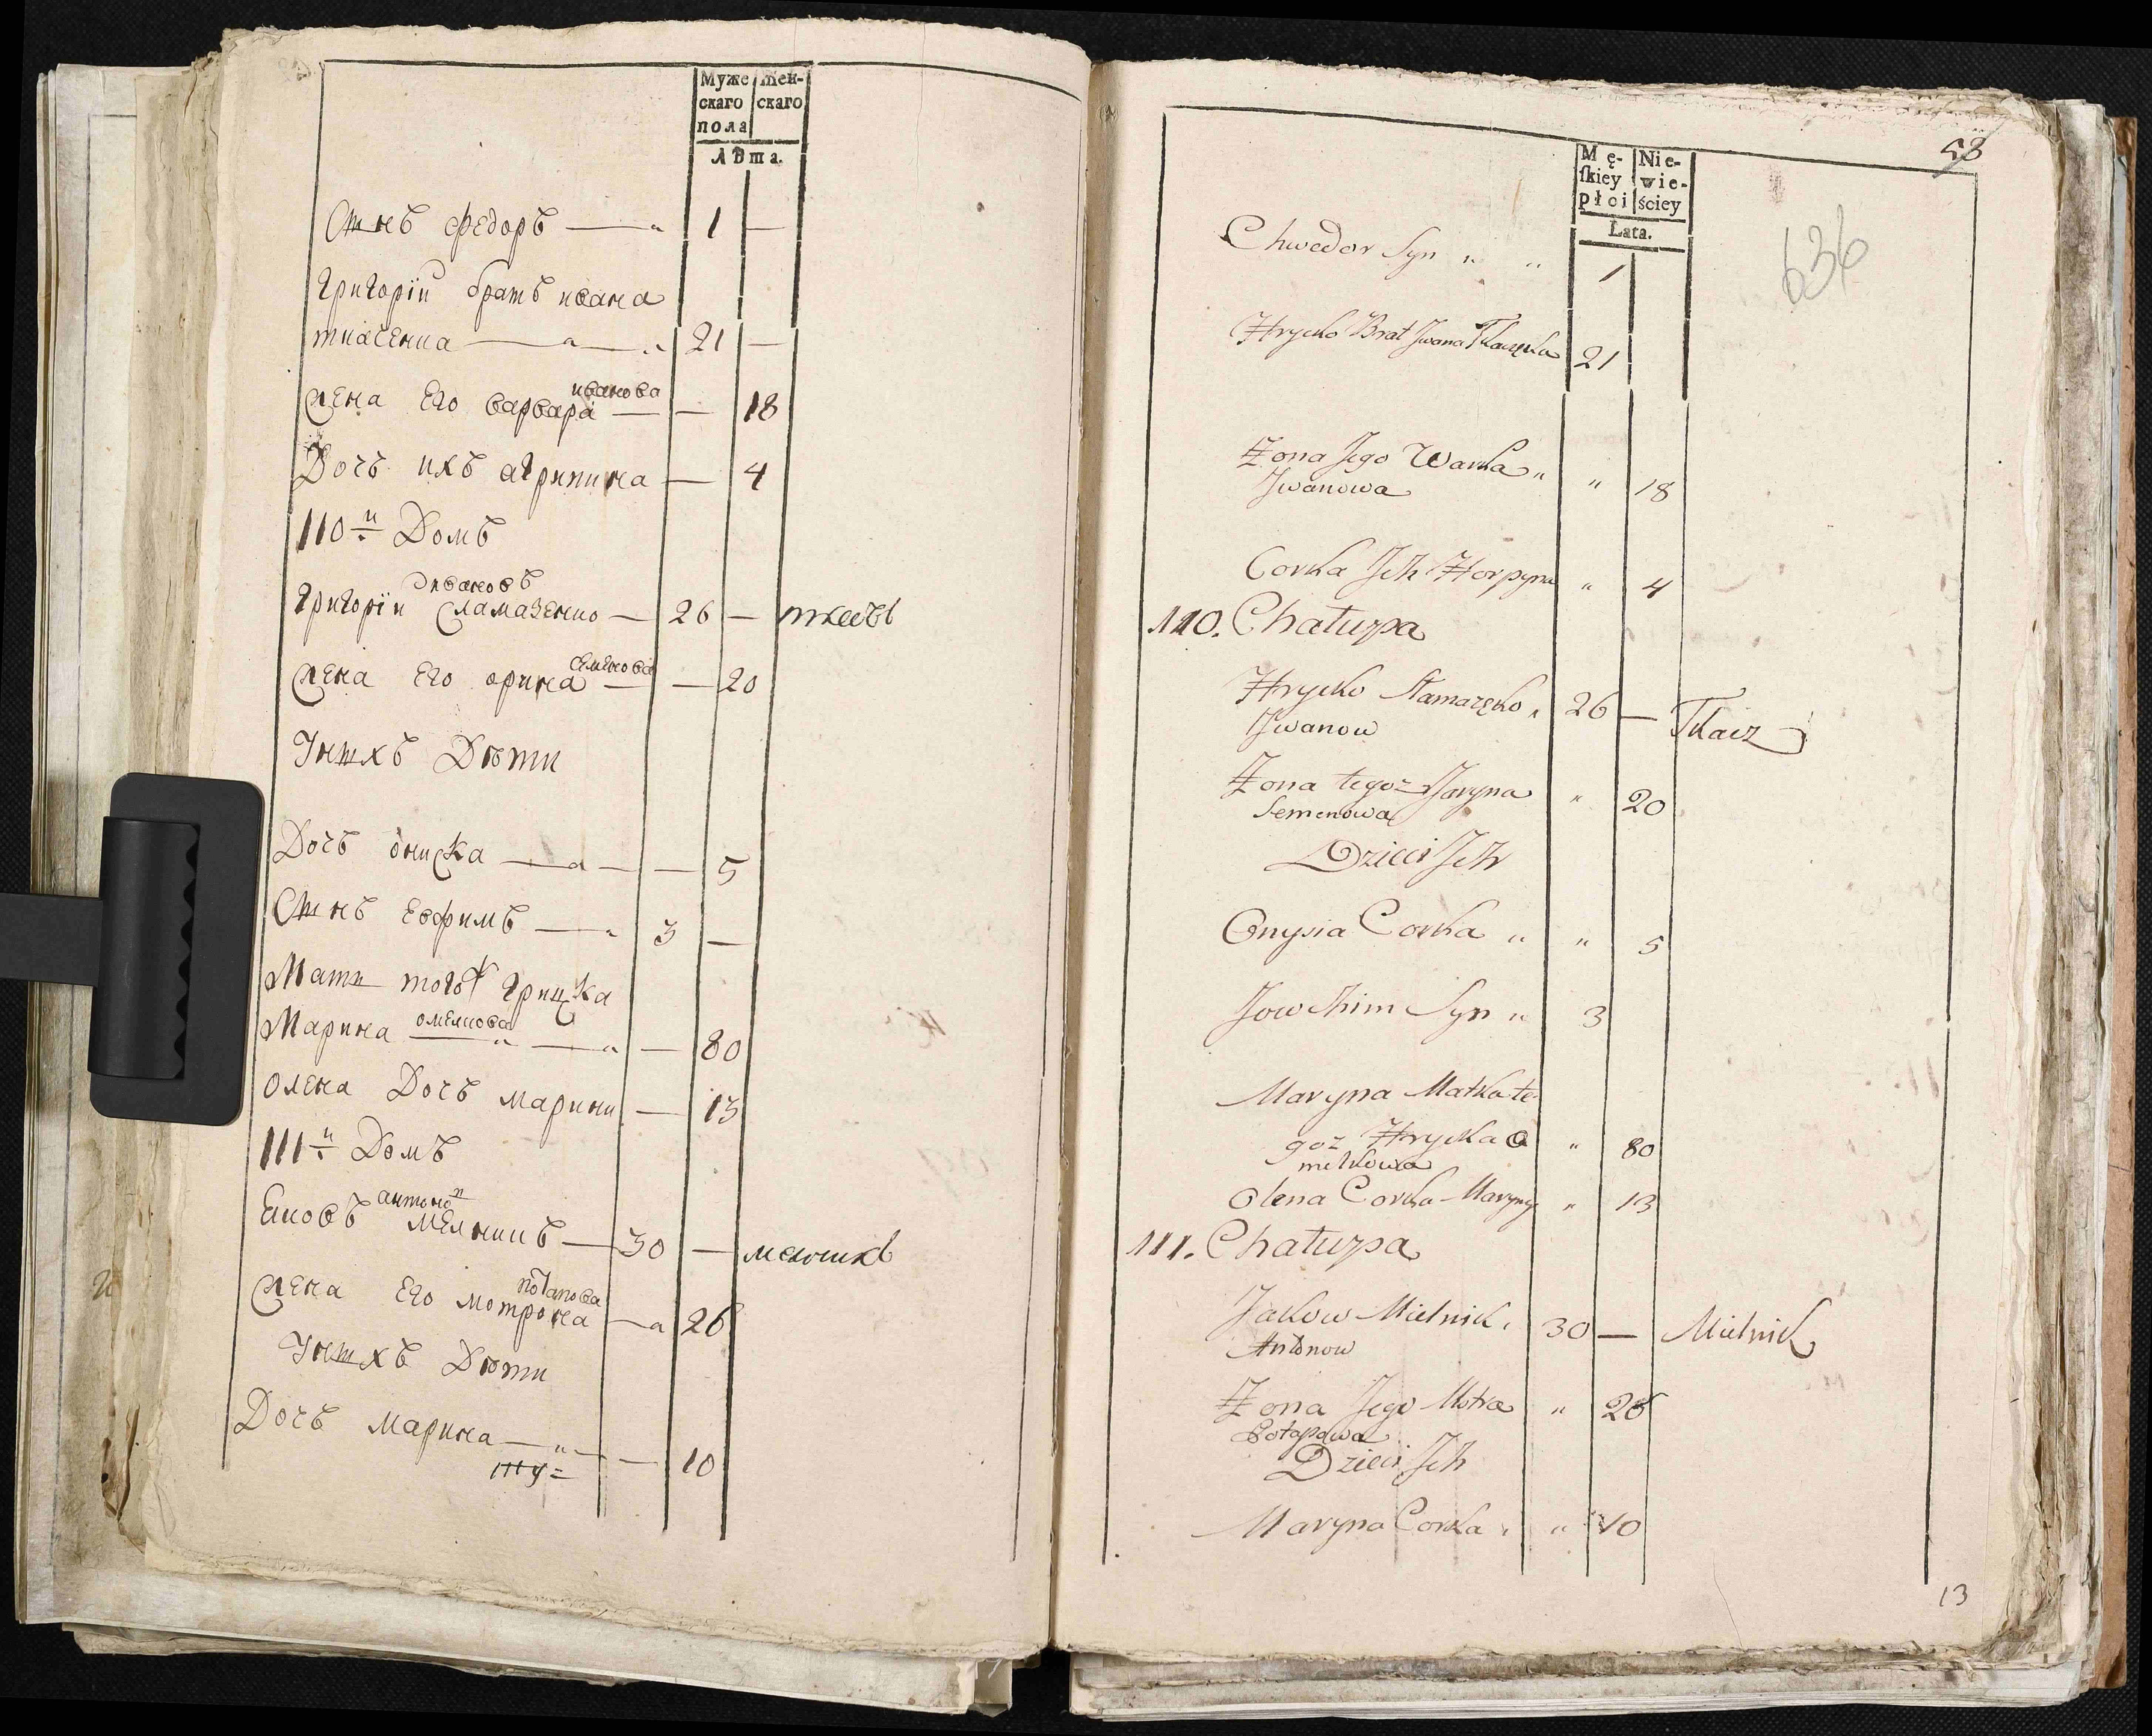 Муже Жен-
скаго скаго
пола
Лѣта.
Сынъ федоръ — 1 —
Григоріи братъ ивана
ткаченка — 21 —
жена Его варвара иванова — — 18
Дочъ ихъ агрипина — 4
110й Домъ
Григоріи ивановъ Сламазенко — 26 — ткачъ
жена Его орина семенова — — 20
У нихъ Дѣти
Дочъ ониска — — 5
Сынъ Евфимъ — 3 —
Мати тогож грицка
Марина омелкова — — 80
олена Дочъ марини — 13
111й Домъ
Яковъ антоно мелникъ — 30 — мелникъ
жена Его мотрона потапова — 26
У нихъ Дѣти
Дочъ марина — — 10
58
636
Mę- Nie-
skiey wie-
płci ściey
Lata.
Chwedor Syn „ „ 1
Hrycko Brat Jwana Tkaczęka 21
Żona Jego Warka „ „ 18
Jwanowa
Corka Jch Horpyna „ 4
110. Chałupa
Hrycko Słamazęko „ 26 — Tkacz
Jwanow
Żona tegoż Jaryna „ 20
Semenowa
Dzieci Jch
Onysia Corka „ „ 5
Jowchim Syn „ 3
Maryna Matka te-
goż Hrycka O „ 80
melkowa
Olena Corka Maryny „ 13
111. Chałupa
Jakow Mielnik „ 30 — Mielnik
Antonow
Żona Jego Motra „ 26
Potapowa
Dzieci Jch
Maryna Corka „ „ 10
13